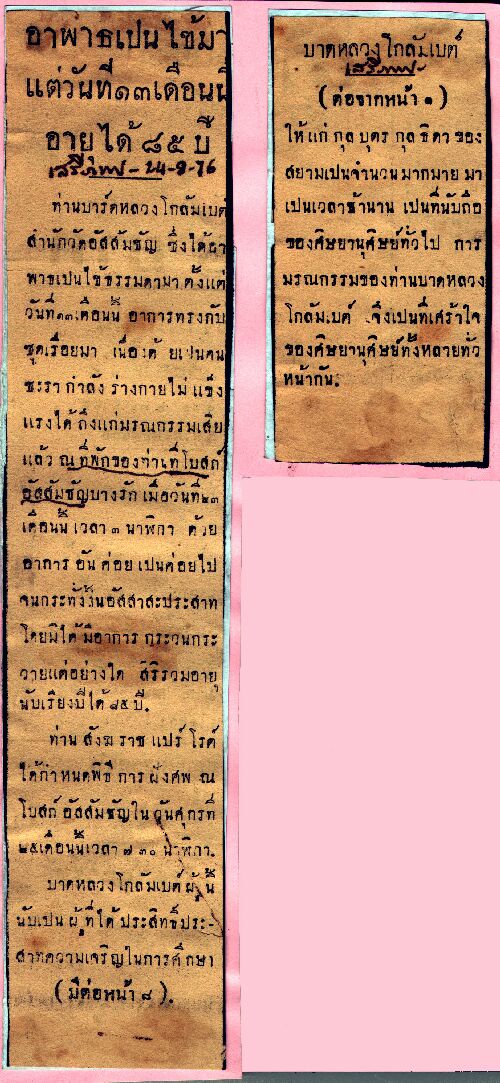 อาพาธเปนไข้มา
แต่วันที่๑๓เดือนนี้
อายุได้ ๘๕ ปี
เสรีภาพ - 24-8-76
ท่านบาร์ตหลวงโกลัมเบต์
สำนักวัดอัสสัมชัญ ซึ่งได้อา
พาธเปนไข้ธรรมดามา ตั้งแต่
วันที่๑๓เดือนนี้ อาการทรงกับ
ซุดเรื่อยมา เนื่องด้วยเปนคน
ชะรา กำลัง ร่างกายไม่ แข็ง
แรงได้ ถึงแก่มรณกรรมเสีย
แล้ว ณ ที่พักของท่านที่โบสถ์
อัสสัมชัญบางรัก เมื่อวันที่๒๓
เดือนนี้ เวลา ๓ นาฬิกา ด้วย
อาการ อัน ค่อย เปนค่อยไป
จนกระทั่งสิ้นอัสสาสะประสาท
โดยมิได้ มีอาการ กระวนกระ
วายแต่อย่างใด สิริรวมอายุ
นับเรียงปีได้ ๘๕ ปี.
ท่าน สังฆ ราช แปร์ โรส์
ได้กำหนดพิธี การ ฝังศพ ณ
โบสถ์ อัสสัมชัญใน วันศุกรที่
๒๕เดือนนี้เวลา ๗ ๓๐ นาฬิกา.
บาดหลวงโกลัมเบต์ ผู้ นี้
นับเปน ผู้ ที่ได้ ประสิทธิ์ประ-
สาทความเจริญในการศึกษา
( มีต่อหน้า ๘ ).
บาดหลวงโกลัมเบต์
เสรีภาพ -
( ต่อจากหน้า ๑ )
ให้ แก่ กุล บุตร กุล ธิดา ของ
สยามเปนจำนวน มากมาย มา
เปนเวลาช้านาน เปนที่นับถือ
ของศิษยานุศิษย์ทั่วไป การ
มรณกรรมของท่านบาดหลวง
โกลัมเบต์ จึงเปนที่เศร้าใจ
ของศิษยานุศิษย์ทั้งหลายทั่ว
หน้ากัน.